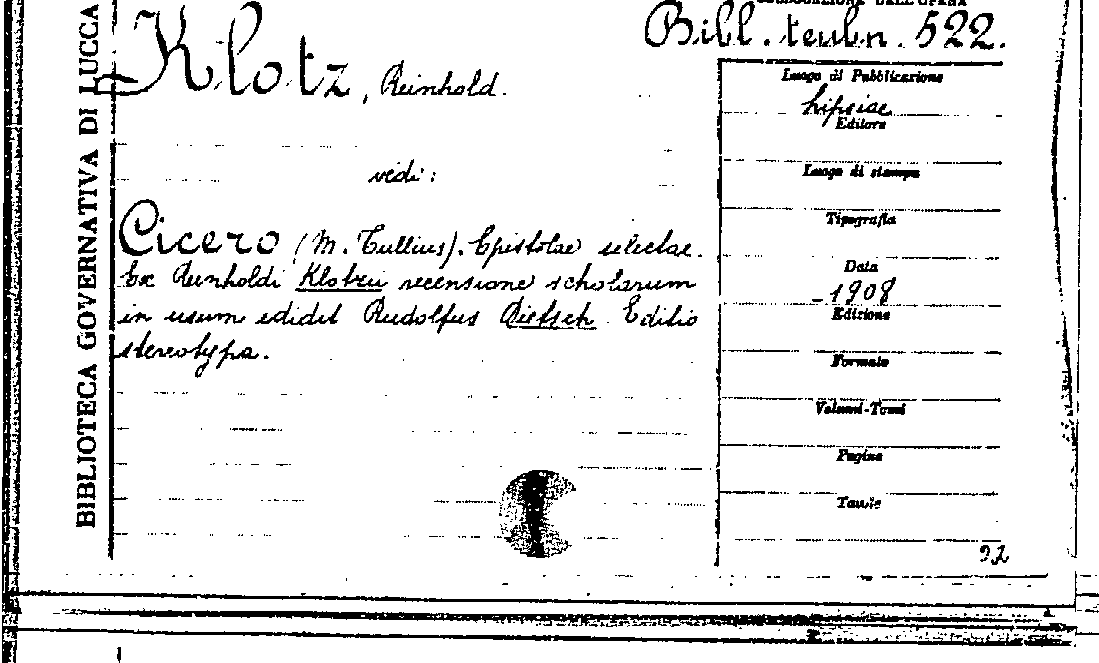 COLLOCAZIONE DELL'OPERA
Bibl. teubn. 522.
BIBLIOTECA GOVERNATIVA DI LUCCA
Klotz, Reinhold.
vedi:
Cicero (M. Tullius). Epistolae selectae.
Ex Reinholdi Klotzii recensione scholarum
in usum edidit Rudolfus Dietsch. Editio
stereotypa.
Luogo di Pubblicazione
Lipsiae
Editore
Luogo di stampa
Tipografia
Data
1908
Edizione
Formato
Volumi-Tomi
Pagine
Tavole